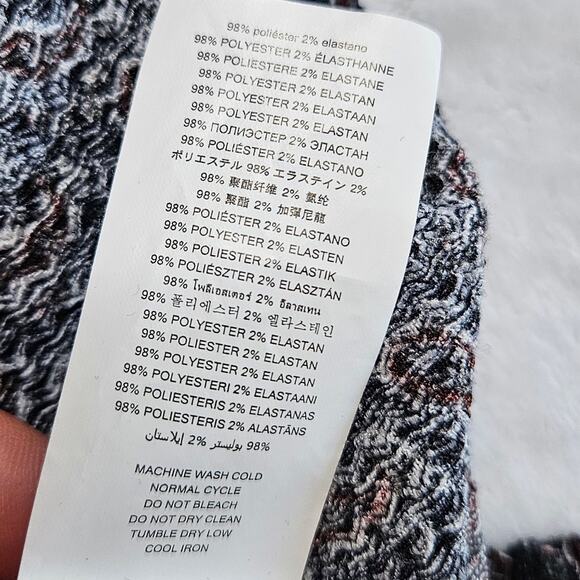 98% poliéster 2% elastano
98% POLYESTER 2% ÉLASTHANNE
98% POLIESTERE 2% ELASTANE
98% POLYESTER 2% ELASTAN
98% POLYESTER 2% ELASTAAN
98% POLYESTER 2% ELASTAN
98% ПОЛИЭСТЕР 2% ЭЛАСТАН
98% POLIÉSTER 2% ELASTANO
ポリエステル 98% エラステイン 2%
98% 聚酯纤维 2% 氨纶
98% 聚酯 2% 加彈尼龍
98% POLIÉSTER 2% ELASTANO
98% POLYESTER 2% ELASTEN
98% POLIESTER 2% ELASTIK
98% POLIÉSZTER 2% ELASZTÁN
98% โพลีเอสเตอร์ 2% อีลาสเทน
98% 폴리에스터 2% 엘라스테인
98% POLYESTER 2% ELASTAN
98% POLIESTER 2% ELASTAN
98% POLYESTER 2% ELASTAN
98% POLYESTERI 2% ELASTAANI
98% POLIESTERIS 2% ELASTANAS
98% POLIESTERIS 2% ALASTĀNS
98% بوليستر 2% إيلاستان
MACHINE WASH COLD
NORMAL CYCLE
DO NOT BLEACH
DO NOT DRY CLEAN
TUMBLE DRY LOW
COOL IRON